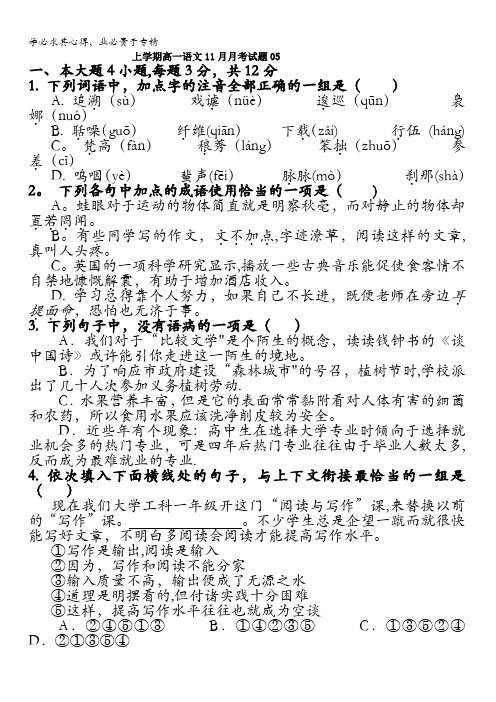 学必求其心得，业必贵于专精
上学期高一语文11月月考试题05
一、本大题4小题,每题3分，共12分
1. 下列词语中，加点字的注音全部正确的一组是（　　）
A. 追溯（sù）　戏谑（nüè）　逡巡（qūn）　袅
娜（nuó）
B. 聒噪(guō)　纤维(qiān)　下载(zǎi)　行伍 (háng)
C。梵高（fàn）　稂莠（láng）　笨拙（zhuō）　参
差（cī）
D. 呜咽(yè)　蜚声(fēi)　脉脉(mò)　刹那(shà)
2。 下列各句中加点的成语使用恰当的一项是（　　）
A。蛙眼对于运动的物体简直就是明察秋毫，而对静止的物体却
置若罔闻。
B。有些同学写的作文，文不加点,字迹潦草，阅读这样的文章,
真叫人头疼。
C。英国的一项科学研究显示,播放一些古典音乐能促使食客情不
自禁地慷慨解囊，有助于增加酒店收入。
D. 学习总得靠个人努力，如果自己不长进，既便老师在旁边耳
提面命，恐怕也无济于事。
3. 下列句子中，没有语病的一项是（　　）
A．我们对于“比较文学"是个陌生的概念，读读钱钟书的《谈
中国诗》或许能引你走进这一陌生的境地。
B．为了响应市政府建设“森林城市"的号召，植树节时,学校派
出了几十人次参加义务植树劳动.
C．水果营养丰富，但是它的表面常常黏附着对人体有害的细菌
和农药，所以食用水果应该洗净削皮较为安全。
D．近些年有个现象：高中生在选择大学专业时倾向于选择就
业机会多的热门专业，可是四年后热门专业往往由于毕业人数太多,
反而成为最难就业的专业.
4. 依次填入下面横线处的句子，与上下文衔接最恰当的一组是
（　　）
现在我们大学工科一年级开这门“阅读与写作”课,来替换以前
的“写作”课。＿＿＿＿＿＿＿＿。不少学生总是企望一蹴而就很快
能写好文章，不明白多阅读会阅读才能提高写作水平。
①写作是输出,阅读是输入
②因为，写作和阅读不能分家
③输入质量不高，输出便成了无源之水
④道理是明摆着的,但付诸实践十分困难
⑤这样，提高写作水平往往也就成为空谈
A．②④⑤①③　B．①④②③⑤　C．①③⑤②④
D．②①③⑤④